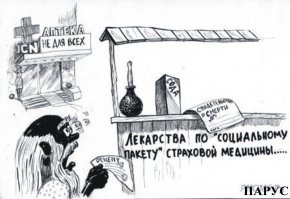 АПТЕКА
НЕ ДЛЯ ВСЕХ
ICN
СОДА
СВИДЕТЕЛЬСТВО
О СМЕРТИ
РЕЦЕПТ
ЛЕКАРСТВА ПО "СОЦИАЛЬНОМУ
ПАКЕТУ" СТРАХОВОЙ МЕДИЦИНЫ.....
ПАРУС